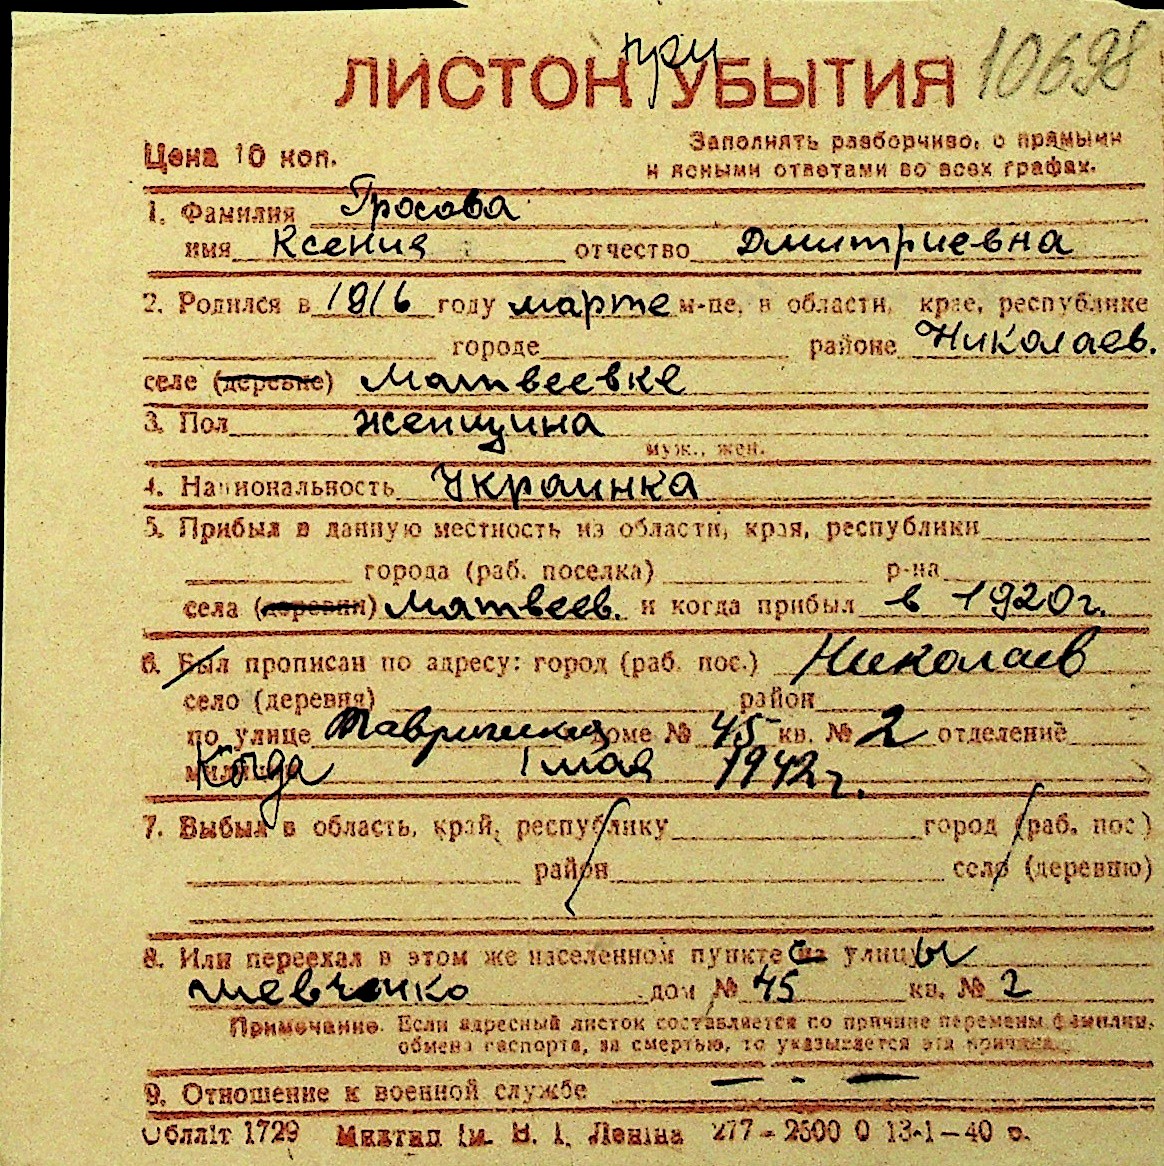 ЛИСТОК при УБЫТИЯ 10698
Цена 10 коп.
Заполнять разборчиво, с прямыми
и ясными ответами во всех графах.
1. Фамилия Гросова
имя Ксения отчество Дмитриевна
2. Родился в 1916 году марте м-це, в области, крае, республике
городе районе Николаев.
селе (деревне) Матвеевке
3. Пол женщина
муж., жен.
4. Национальность Украинка
5. Прибыл в данную местность из области, края, республики
города (раб. поселка) р-на
села (деревни) Матвеев. и когда прибыл в 1920г.
6. Был прописан по адресу: город (раб. пос.) Николаев
село (деревня) район
по улице Таврическая доме № 45 кв. № 2 отделение
милиции Когда 1 мая 1942г.
7. Выбыл в область, край, республику город (раб. пос.)
район село (деревню)
8. Или переехал в этом же населенном пункте с на улицы
Шевченко дом № 45 кв. № 2
Примечание. Если адресный листок составляется по причине перемены фамилии,
обмена паспорта, за смертью, то указывается эта причина.
9. Отношение к военной службе — - —
Облліт 1729 Миктип ім. В. І. Леніна 277 - 2500 0 13-1-40 р.